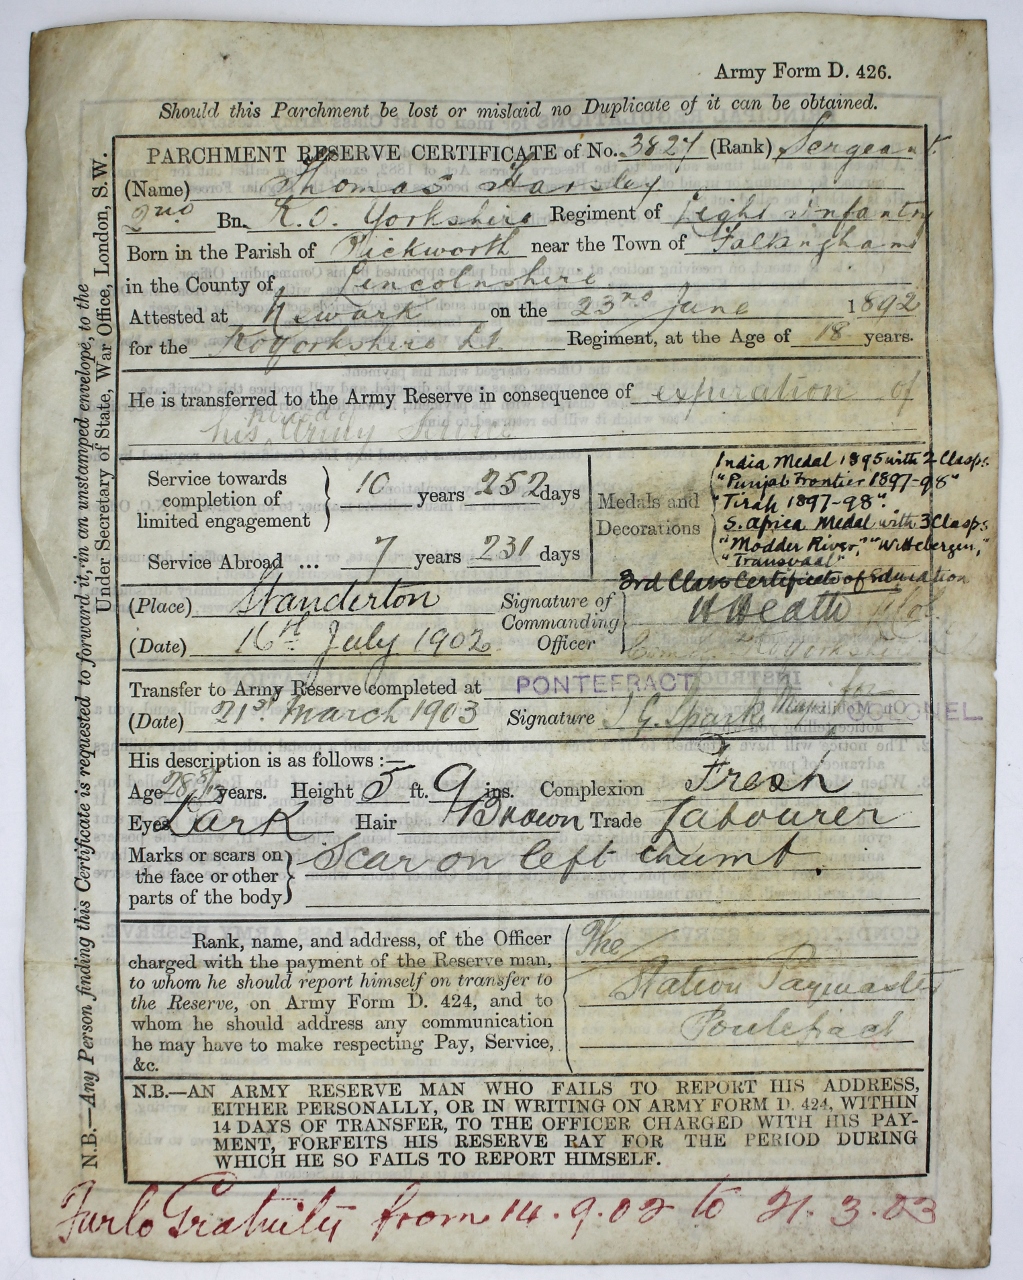 Army Form D. 426.
Should this Parchment be lost or mislaid no Duplicate of it can be obtained.
PARCHMENT RESERVE CERTIFICATE of No. 3827 (Rank) Sergeant
(Name) Thomas Harsley
2nd Bn. K.O. Yorkshire Regiment of Light Infantry
Born in the Parish of Pickworth near the Town of Falkingham
in the County of Lincolnshire
Attested at Newark on the 23rd June 1892
for the KOYorkshire L.I. Regiment, at the Age of 18 years.
He is transferred to the Army Reserve in consequence of expiration of
his Army Service
Service towards completion of limited engagement } 10 years 252 days
Service Abroad ... 7 years 231 days
Medals and Decorations
India Medal 1895 with 2 Clasps
"Punjab Frontier 1897-98"
"Tirah 1897-98".
S. Africa Medal with 3 Clasps
"Modder River," "Wittebergen,"
"Transvaal"
3rd Class Certificate of Education
(Place) Standerton
(Date) 16th July 1902
Signature of Commanding Officer } H Heath
Transfer to Army Reserve completed at PONTEFRACT
(Date) 21st March 1903 Signature Major for COLONEL
His description is as follows :—
Age 28 years. Height 5 ft. 9 ins. Complexion Fresh
Eyes Dark Hair Brown Trade Labourer
Marks or scars on the face or other parts of the body } Scar on left thumb.
Rank, name, and address, of the Officer
charged with the payment of the Reserve man,
to whom he should report himself on transfer to
the Reserve, on Army Form D. 424, and to
whom he should address any communication
he may have to make respecting Pay, Service,
&c.
The
Station Paymaster
Pontefract
N.B.—AN ARMY RESERVE MAN WHO FAILS TO REPORT HIS ADDRESS,
EITHER PERSONALLY, OR IN WRITING ON ARMY FORM D. 424, WITHIN
14 DAYS OF TRANSFER, TO THE OFFICER CHARGED WITH HIS PAY-
MENT, FORFEITS HIS RESERVE PAY FOR THE PERIOD DURING
WHICH HE SO FAILS TO REPORT HIMSELF.
Furlo Gratuity from 14.9.02 to 21.3.03
N.B.—Any Person finding this Certificate is requested to forward it, in an unstamped envelope, to the
Under Secretary of State, War Office, London, S.W.